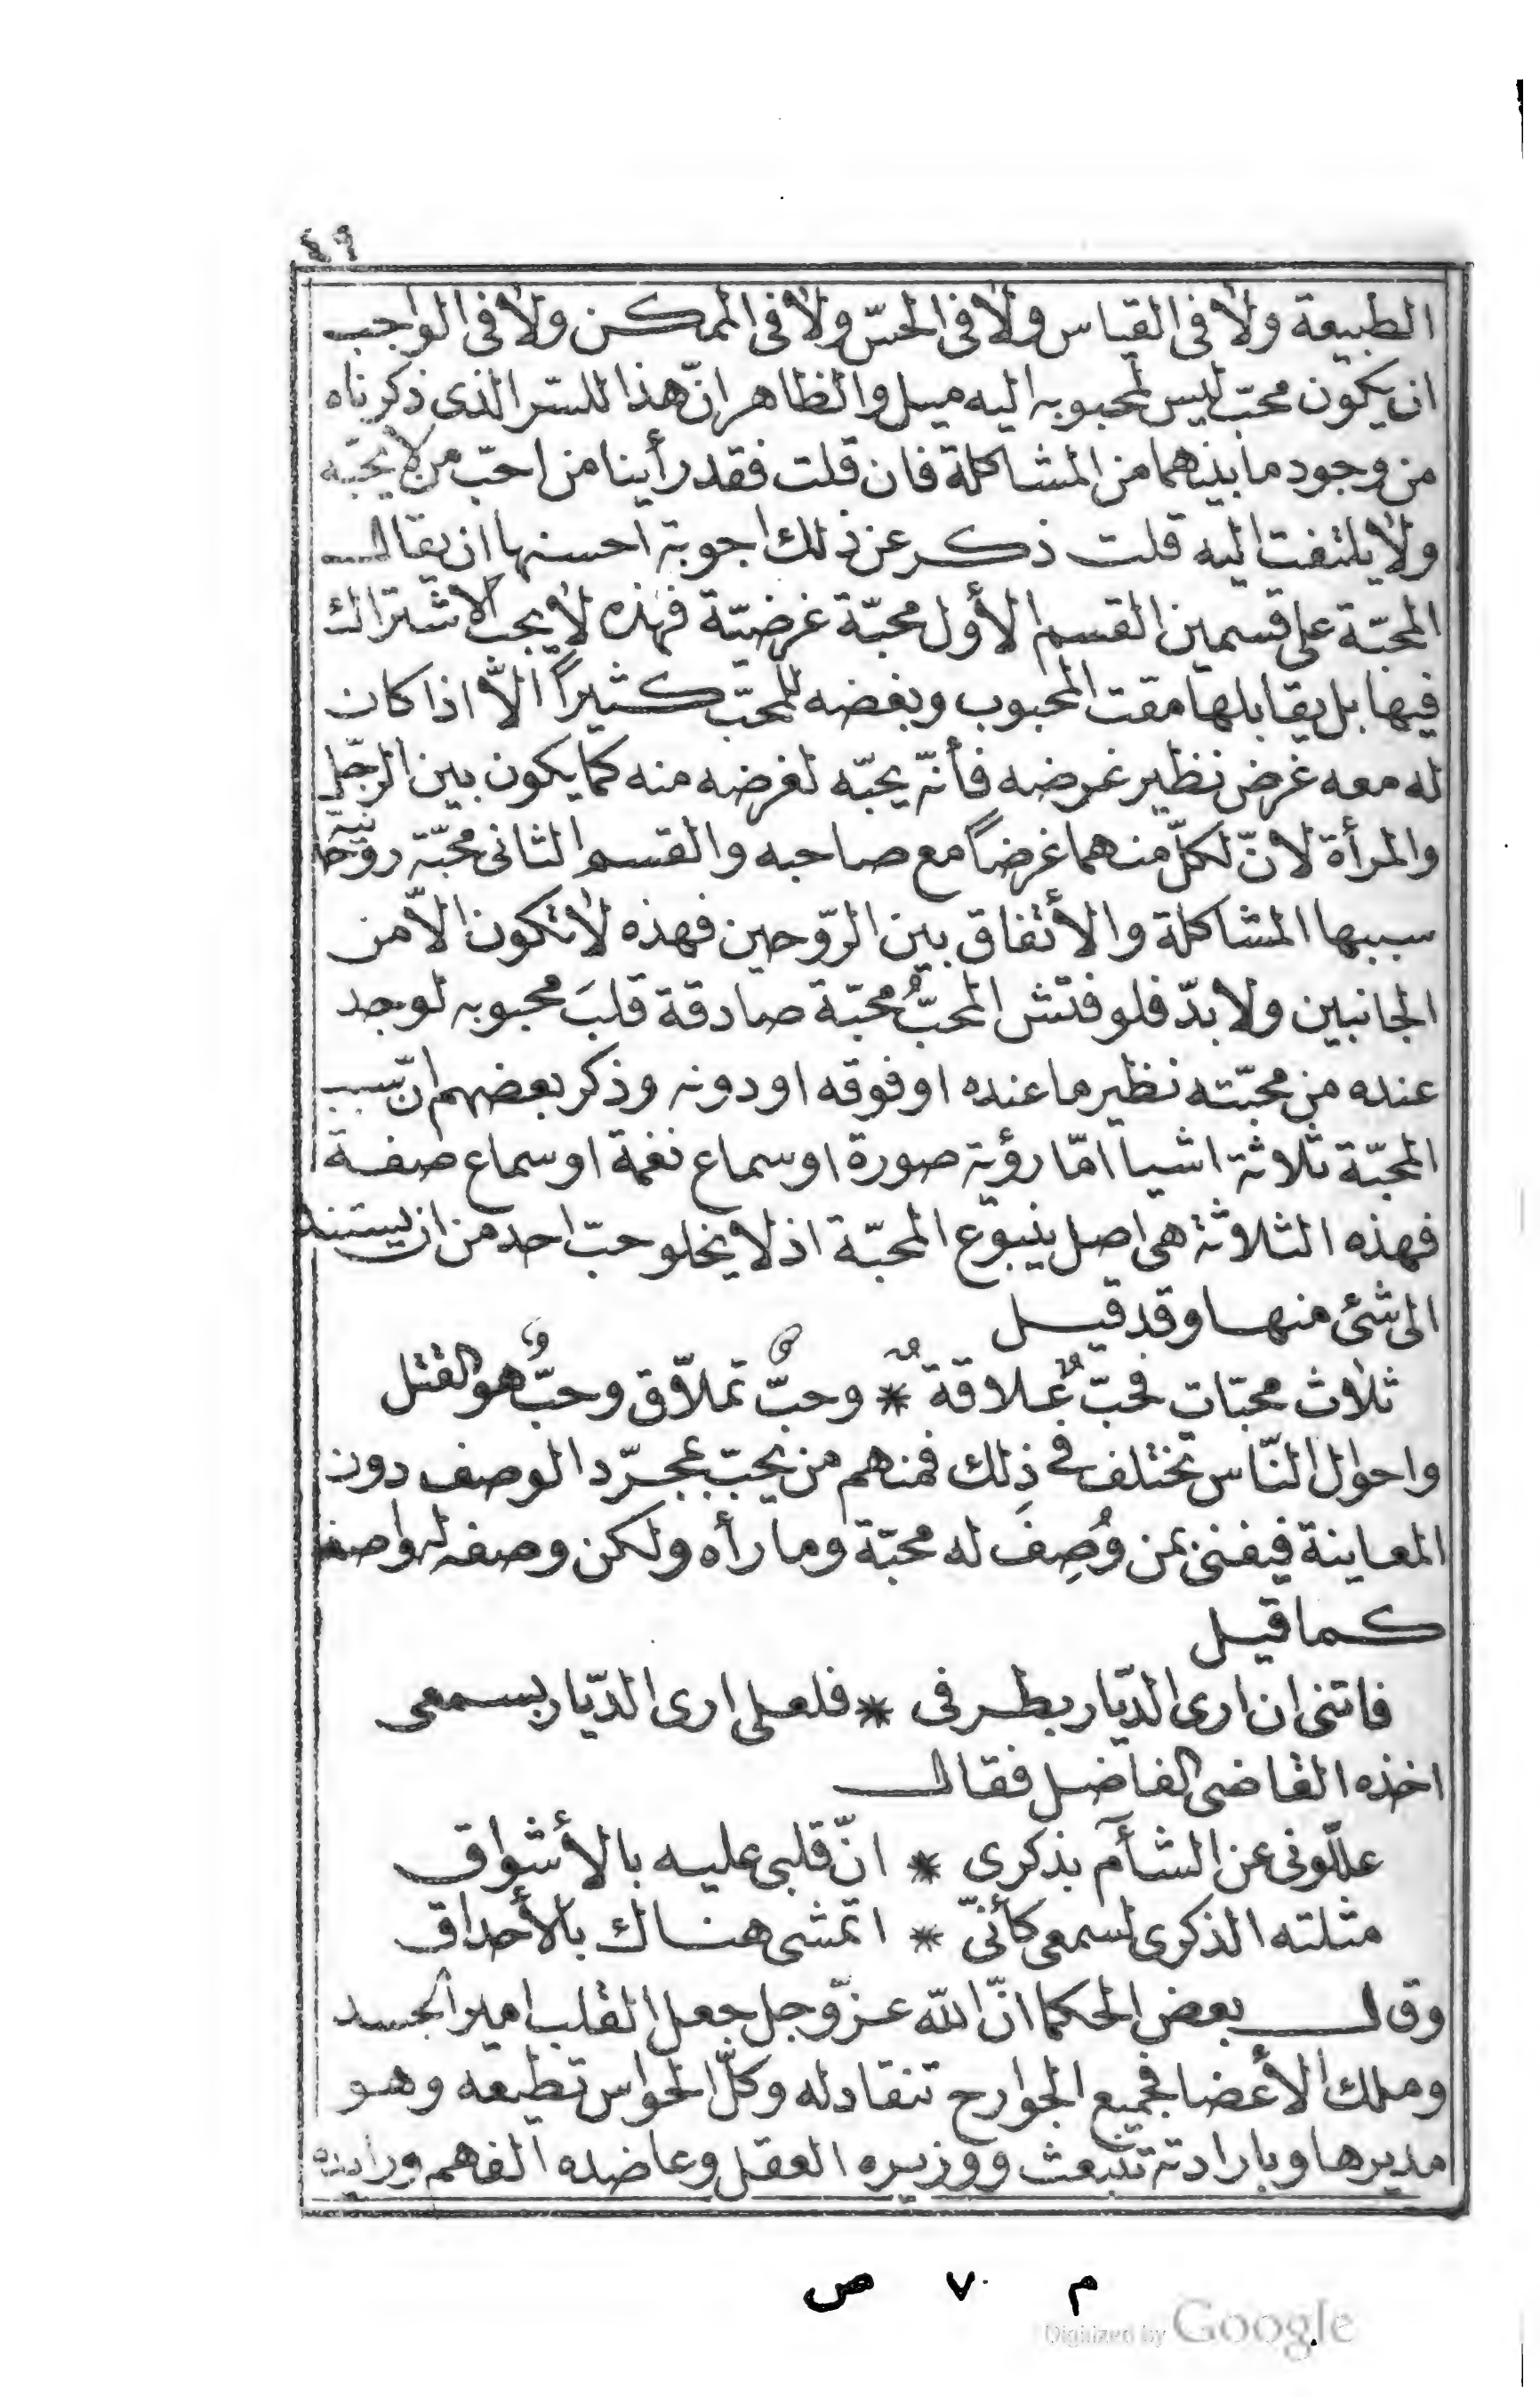 ٤٩
الطبيعة ولا فى القياس ولا فى الحسّ ولا فى الممكن ولا فى الواجب
ان يكون محبّ ليس لمحبوبه اليه ميل والظاهر انّ هذا للسّر الذى ذكرناه
من وجود ما بينهما من المشاكلة فان قلت فقد رأينا من احبّ من لا يحبّه
ولا يلتفت اليه قلت ذكر عن ذلك اجوبة احسنها ان يقال
المحبّة على قسمين القسم الأول محبّة غرضيّة فهذه لا يجب الاشتراك
فيها بل يقابلها مقت المحبوب وبغضه للمحبّ كثيراً الاّ اذا كان
له معه غرض نظير غرضه فأنّه يحبّه لغرضه منه كما يكون بين الرّجل
والمرأة لانّ لكلّ منهما غرضاً مع صاحبه والقسم الثانى محبّة روحّانيّة
سببها المشاكلة والأتفاق بين الرّوحين فهذه لا تكون الاّ من
الجانبين ولا بدّ فلو فتّش المحبُّ محبّة صادقة قلبَ محبوبه لوجد
عنده من محبّته نظير ما عنده او فوقه او دونه وذكر بعضهم انّ سبب
المحبّة ثلاثة اشيا امّا رؤية صورة او سماع نغمة او سماع صفة
فهذه الثلاثة هى اصل ينبوع المحبّة اذ لا يخلو حبّ احد من ان يستند
الى شئ منها وقد قيل
ثلاث محبّات فحبّ علاقة * وحبّ تملاّق وحبٌّ هو القتل
واحوال النّاس تختلف فى ذلك فمنهم من يحبّ بمجرّد الوصف دون
المعاينة فيفنى بمن وُصِفَ له محبّة وما رأه ولكن وصفه له واصف
كما قيل
فاتنى ان ارى الدّيار بطرفى * فلعلى ارى الدّيار بسمعى
اخذه القاضى الفاضل فقال
علّلونى عن الشأم بذكرى * انّ قلبى عليه بالأشواق
مثلته الذكرى لسمعى كأنّى * اتمشى هناك بالأحداق
وقال بعض الحكما انّ الله عزّ وجل جعل القلب امير الجسد
وملك الأعضا فجميع الجوارح تنقاد له وكلّ الحواس تطيعه وهو
مديرها وبارادته تنبعث ووزيره العقل وعاضده الفهم ورايده
م ٧ ص
Digitized by Google